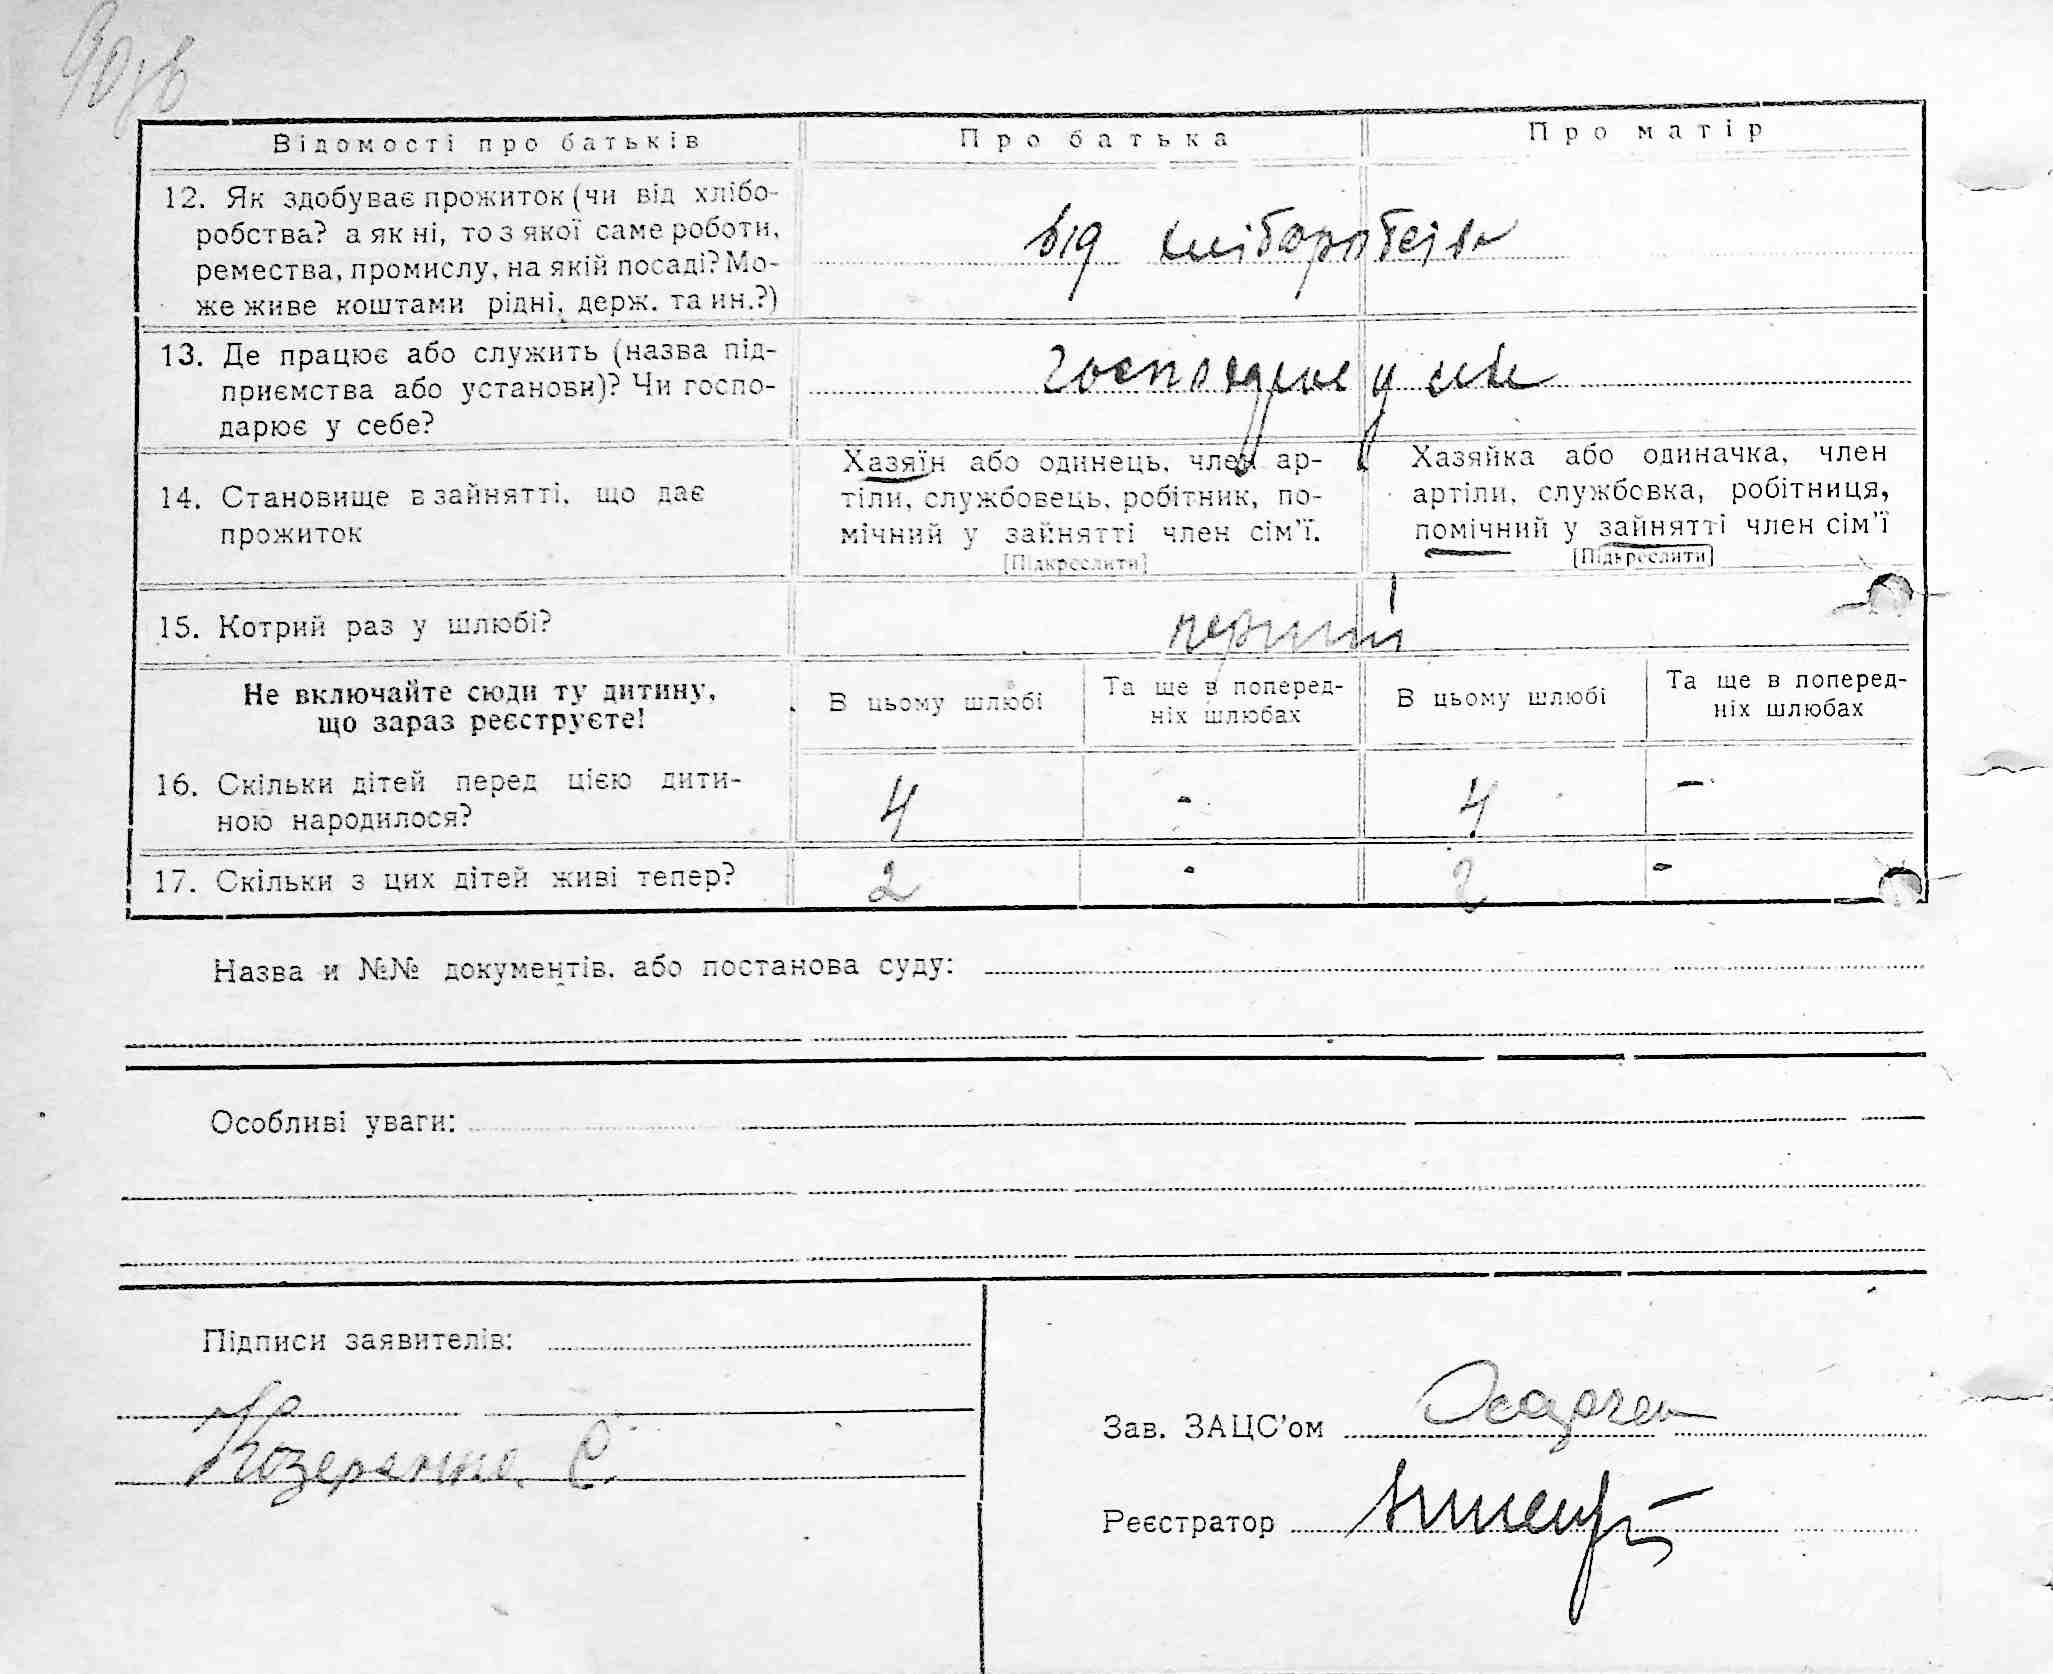 90зв
Відомості про батьків Про батька Про матір
12. Як здобуває прожиток (чи від хлібо-
робства? а як ні, то з якої саме роботи,
ремества, промислу, на якій посаді? Мо-
же живе коштами рідні, держ. та ин.?)
від хліборобства
13. Де працює або служить (назва під-
приємства або установи)? Чи госпо-
дарює у себе?
господарює у себе
14. Становище в зайнятті, що дає
прожиток
Хазяїн або одинець, член ар-
тіли, службовець, робітник, по-
мічний у зайнятті член сім'ї.
[Підкреслити]
Хазяйка або одиначка, член
артіли, службовка, робітниця,
помічний у зайнятті член сім'ї
[Підкреслити]
15. Котрий раз у шлюбі?
перший
Не включайте сюди ту дитину,
що зараз реєструєте!
В цьому шлюбі
Та ще в поперед-
ніх шлюбах
В цьому шлюбі
Та ще в поперед-
ніх шлюбах
16. Скільки дітей перед цією дити-
ною народилося?
4 - 4 -
17. Скільки з цих дітей живі тепер? 2 - 2 -
Назва и №№ документів, або постанова суду:
Особливі уваги:
Підписи заявителів:
С.
Зав. ЗАЦС'ом
Реєстратор